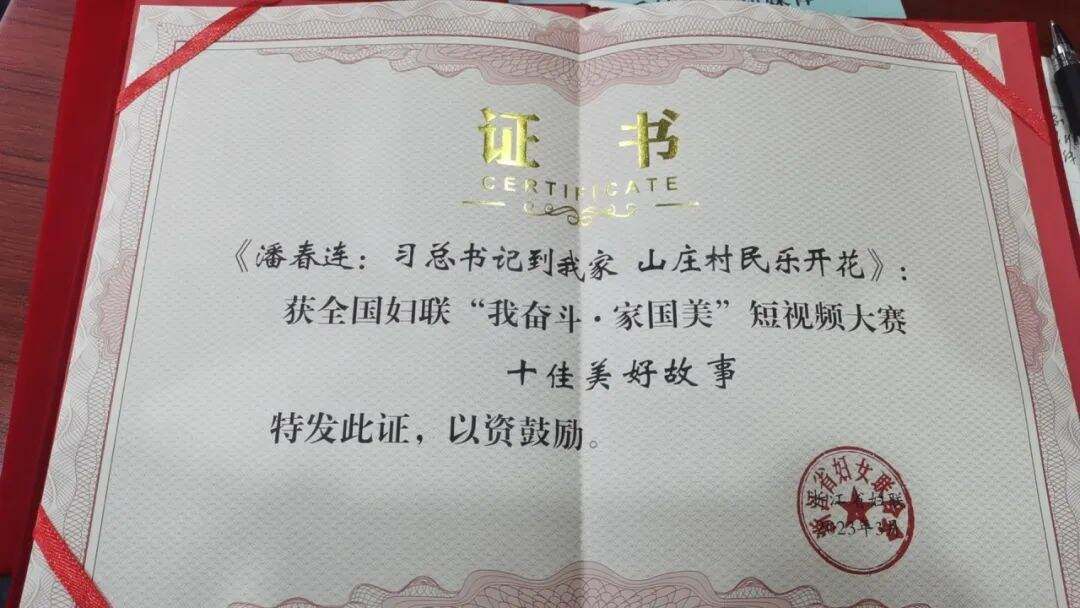 证 书
CERTIFICATE
《潘春连：习总书记到我家 山庄村民乐开花》：
获全国妇联“我奋斗·家国美”短视频大赛
十佳美好故事
特发此证，以资鼓励。
江省妇联
2023年3月